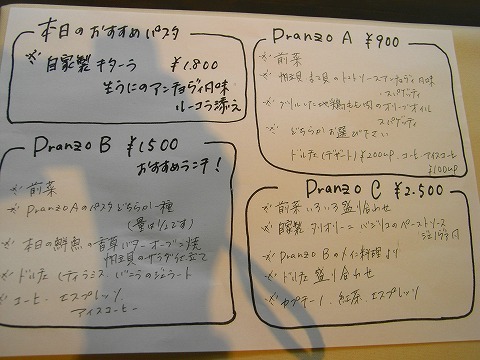 本日のおすすめパスタ
※自家製キターラ ¥1.800
生うにのアンチョヴィ風味
ルーコラ添え
Pranzo A ¥900
※前菜
トマトソースアンチョヴィ風味
スパゲッティ
※グリルした地鶏もも肉のオリーブオイル
スパゲッティ
※どちらかお選び下さい
ドルチェ(デザート)¥200up、コーヒーアイスコーヒー
¥100up
Pranzo B ¥1500
おすすめランチ!
※前菜
※Pranzo Aのパスタどちらか一種
(量は1/2です)
※本日の鮮魚の香草バターオーブン焼
サラダ仕立て
※ドルチェ(ティラミス バニラのジェラート
※コーヒー、エスプレッソ、
アイスコーヒー
Pranzo C ¥2.500
※前菜いろいろ盛り合わせ
※自家製 バジリコのペーストソース
ジェノヴァ風
※Pranzo Bのメイン料理より
※ドルチェ盛り合わせ
※カプチーノ、紅茶、エスプレッソ